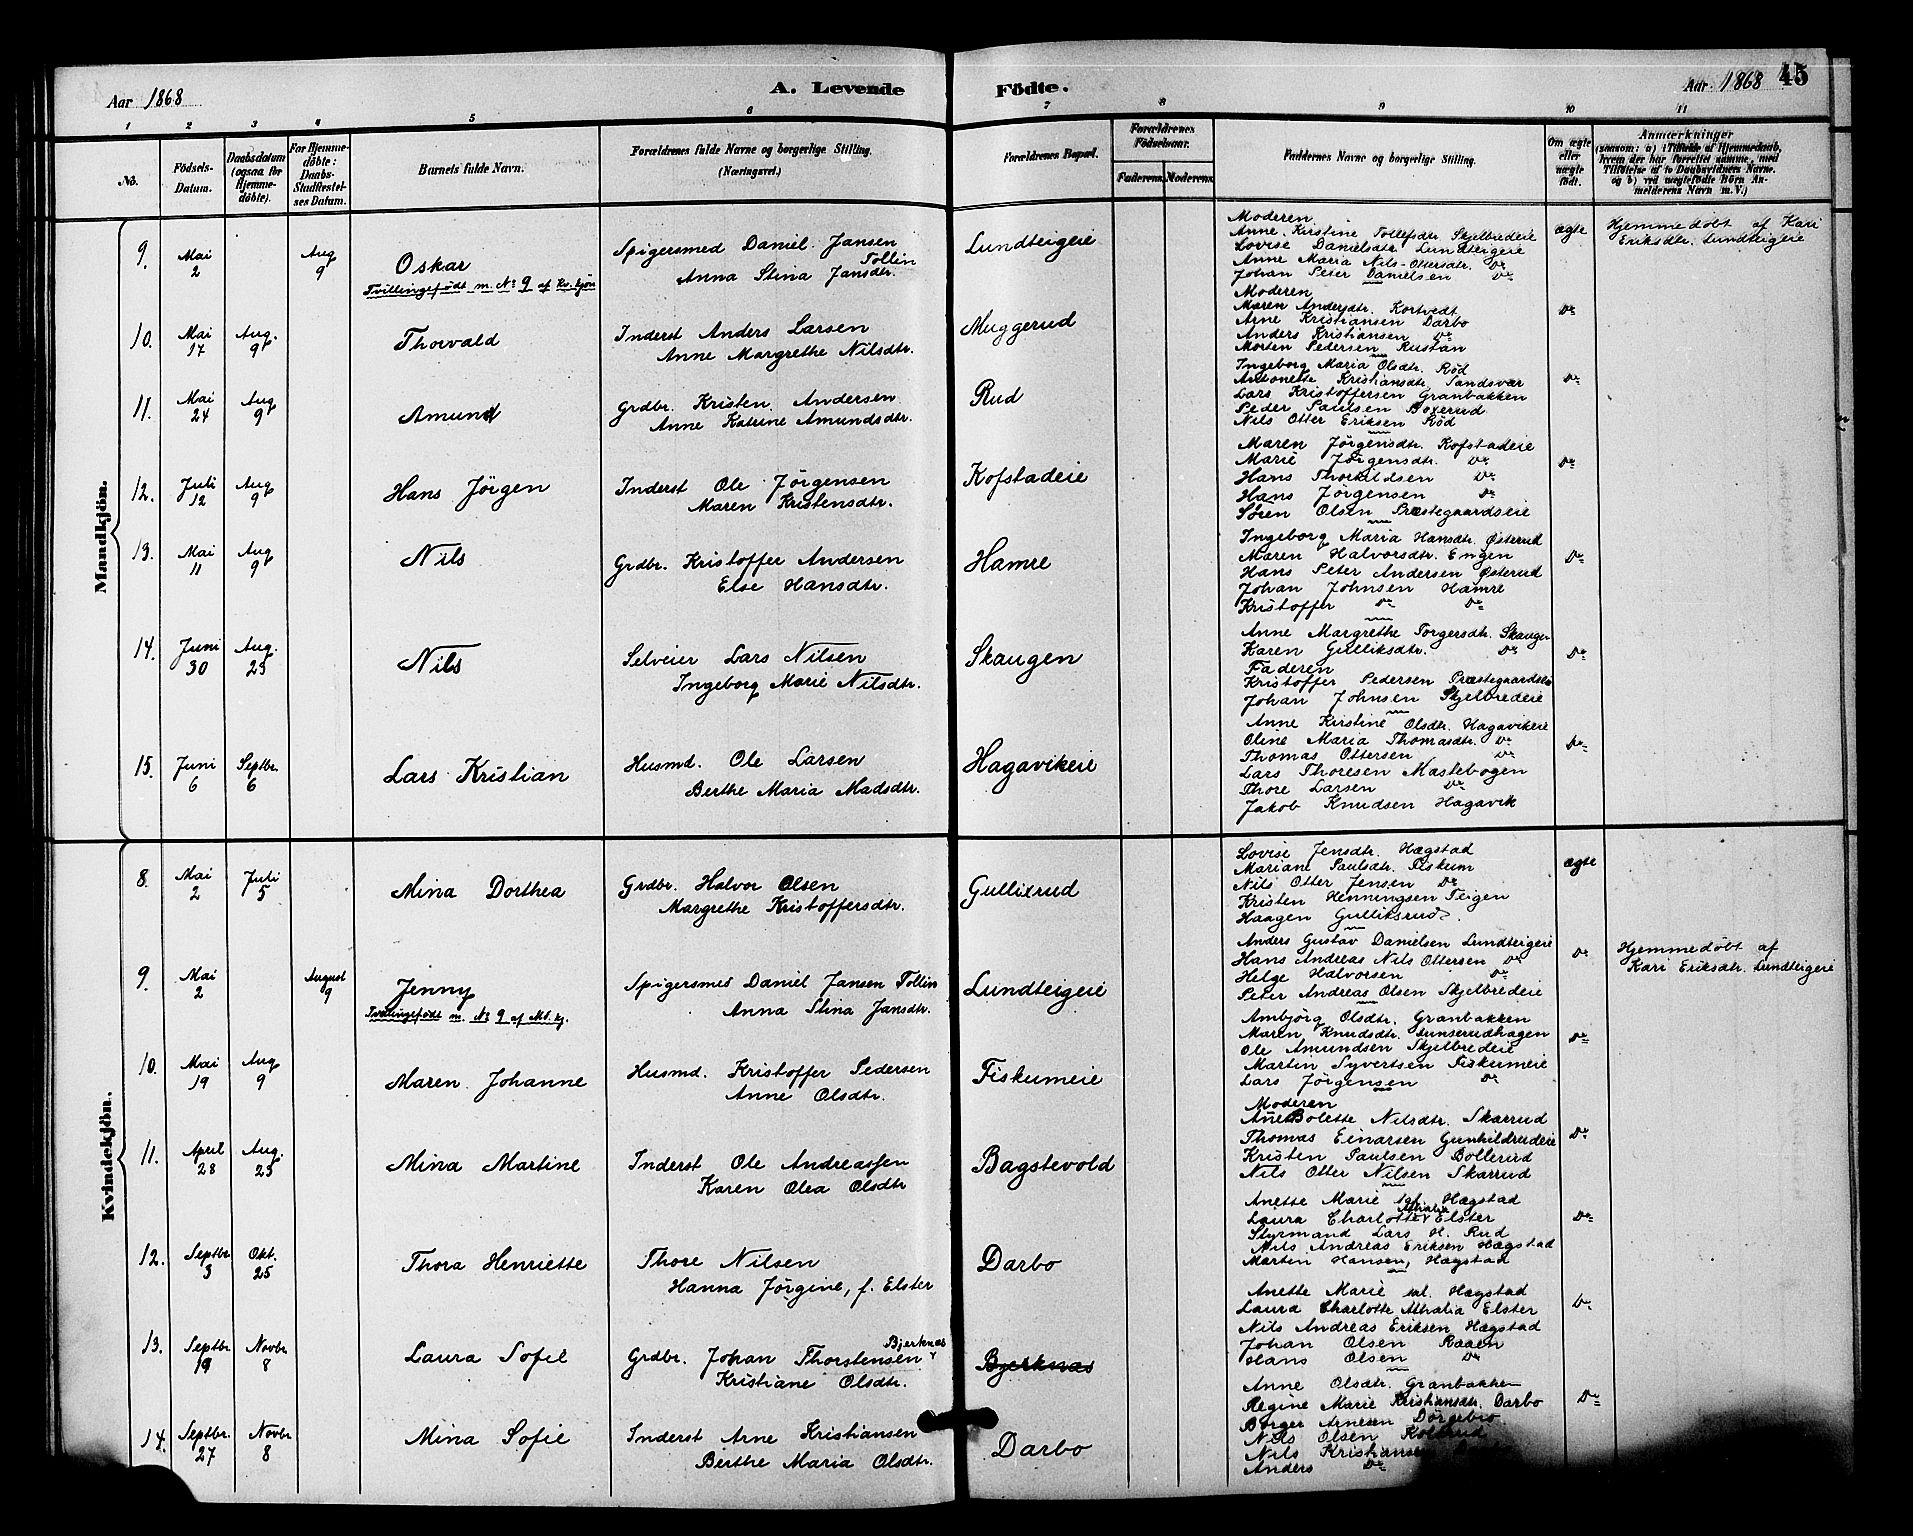 Aar 1868
A. Levende
Fødte.
Aar 1868 45
1 2 3 4 5 6 7 8 9 10 11
No.
Födsels-Datum.
Daabsdatum (ogsaa for Hjemmedøbte).
For Hjemmedøbte: Daabs-Stadfæstelses Datum.
Barnets fulde Navn.
Forældrenes fulde Navne og borgerlige Stilling. (Næringsvei.)
Forældrenes Bopæl.
Forældrenes Födselsaar.
Faderens. Moderens.
Faddernes Navne og borgerlige Stilling.
Om ægte eller uægte født.
Anmærkninger
(saasom: a) i Tilfælde af Hjemmedaab, hvem der har forrettet samme, med Tilføielse af to Daabsvidners Navne, og b) ved uægtefødte Børn Anmelderens Navn m. V.)
Mandkjön.
9. Mai 2 Aug 9
Oskar
Tvillingefödt m. No 9 af Kv. kjön
Spigersmed Daniel Jansen Tollin
Anna Stina Jansdtr.
Lundteigeie
Moderen
Anne Kirstine Tollefsdtr Skjelbredeie
Lovise Danielsdtr Lundteigeie
Anne Maria Nils-Ottersdtr. Do
Johan Peter Danielsen Do
ægte
Hjemmedöbt af Kari
Eriksdtr. Lundteigeie
10. Mai 17 Aug. 9
Thorvald
Inderst Anders Larsen
Anne Margrethe Nilsdtr.
Muggerud
Moderen
Maren Andersdtr. Kortvedt
Arne Kristiansen Darbo
Anders Kristiansen Do
Morten Pedersen Rustan
Do
11. Mai 24 Aug 9
Amund
Grdbr. Kristen Andersen
Anne Katrine Amundsdtr.
Rud
Ingeborg Maria Olsdtr. Röd
Antonette Kristiansdtr. Sandsvær
Lars Kristoffersen Granbakken
Peder Paulsen Boxerud
Nils Otter Eriksen Röd
Do
12. Juli 12 Aug 9
Hans Jörgen
Inderst Ole Jörgensen
Maren Kristensdtr.
Kofstadeie
Maren Jörgensdtr. Kofstadeie
Marie Jörgensdtr. Do
Hans Thorkildsen Do
Hans Jörgensen Do
Søren Olsen Præstegaardseie
Do
13. Mai 11 Aug 9
Nils
Grdbr. Kristoffer Andersen
Else Hansdtr.
Hamre
Ingeborg Maria Hansdtr. Østerud
Maren Halvorsdtr. Engen
Hans Peter Andersen Østerud
Johan Johnsen Hamre
Kristoffer Do Do
Do
14. Juni 30 Aug. 23
Nils
Selveier Lars Nilsen
Ingeborg Marie Nilsdtr.
Skaugen
Anne Margrethe Torgersdtr. Skaugen
Karen Gulliksdtr. Do
Faderen
Kristoffer Pedersen Præstegaardseie
Johan Johnsen Skjelbredeie
Do
15. Juni 6 Septbr. 6
Lars Kristian
Husmd. Ole Larsen
Berthe Maria Madsdtr.
Hagavikeie
Anne Kirstine Olsdtr. Hagavikeie
Oline Maria Thomasdtr. Do
Thomas Ottersen Do
Lars Thoresen Mastebogen
Thore Larsen Do
Jakob Knudsen Hagavik
Do
Kvindekjön.
8. Mai 2 Juli 5
Mina Dorthea
Grdbr. Halvor Olsen
Margrethe Kristoffersdtr.
Gullixrud
Lovise Jensdtr. Hægstad
Mariane Paulsdtr. Fiskum
Nils Otter Jensen Do
Kristen Henningsen Teigen
Haagen Gulliksrud
ægte
9. Mai 2 August 9
Jenny
Tvillingefödt m. No 9 af Mk. kj.
Spigersmed Daniel Jansen Tollin
Anna Stina Jansdtr.
Lundteigeie
Anders Gustav Danielsen Lundteigeie
Hans Andreas Nils Ottersen Do
Helge Halvorsen Do
Peter Andreas Olsen Skjelbredeie
Do
Hjemmedöbt af
Kari Eriksdtr. Lundteigeie
10. Mai 19 Aug 9
Maren Johanne
Husmd. Kristoffer Pedersen
Anne Olsdtr.
Fiskumeie
Ambjörg Olsdtr. Granbakken
Maren Knudsdtr. Sunserudhagen
Ole Amundsen Skjelbredeie
Martin Syvertsen Fiskumeie
Lars Jörgensen Do
Do
11. April 28 Aug. 23
Mina Martine
Inderst Ole Andreassen
Karen Olea Olsdtr
Bagstevold
Moderen
Ane Bolette Nilsdtr. Skarrud
Thomas Einarsen Gunhildrudeie
Kristen Paulsen Bollerud
Nils Otter Nilsen Skarrud
Do
12. Septbr. 3 Okt. 25
Thora Henriette
Thore Nilsen
Hanna Jörgine, f. Elster
Darbo
Anette Marie Hægstad
Laura Charlotte Athalia Elster
Styrmand Lars H. Rud
Nils Andreas Eriksen Hægstad
Martin Hansen, Hægstad
Do
13. Septbr. 19 Novbr. 8
Laura Sofie
Grdbr. Johan Thorstensen Bjerknæs
Kristiane Olsdtr.
Bjerknæs
Anette Marie sal. Hægstad
Laura Charlotte Athalia Elster
Nils Andreas Eriksen Hægstad
Johan Olsen Raaen
Hans Olsen Do
Do
14. Septbr. 27 Novbr 8
Mina Sofie
Inderst Arne Kristiansen
Berthe Maria Olsdtr.
Darbo
Anne Olsdtr. Granbakken
Regine Marie Kristiansdtr. Darbo
Borger Arnesen Dörgebro
Nils Olsen
Nils Kristiansen
Anders Do
Do